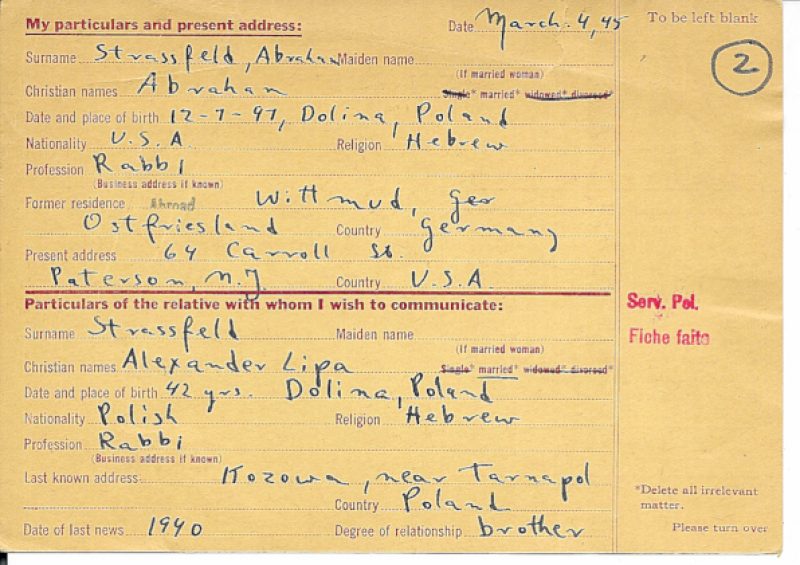 My particulars and present address: Date March. 4, 45 To be left blank
Surname Strassfeld, Abraham Maiden name
(If married woman)
2
Christian names Abraham Single* married* widowed* divorced*
Date and place of birth 12-7-97, Dolina, Poland
Nationality U.S.A. Religion Hebrew
Profession Rabbi
(Business address if known)
Former residence Abroad Wittmud, Ger
Ostfriesland Country Germany
Present address 64 Carroll St.
Paterson, N.J. Country U.S.A.
Particulars of the relative with whom I wish to communicate:
Serv. Pol.
Fiche faite
Surname Strassfeld Maiden name
(If married woman)
Christian names Alexander Lipa Single* married* widowed* divorced*
Date and place of birth 42 yrs. Dolina, Poland
Nationality Polish Religion Hebrew
Profession Rabbi
(Business address if known)
Last known address Kozowa, near Tarnapol
Country Poland
Date of last news 1940 Degree of relationship brother
*Delete all irrelevant
matter.
Please turn over